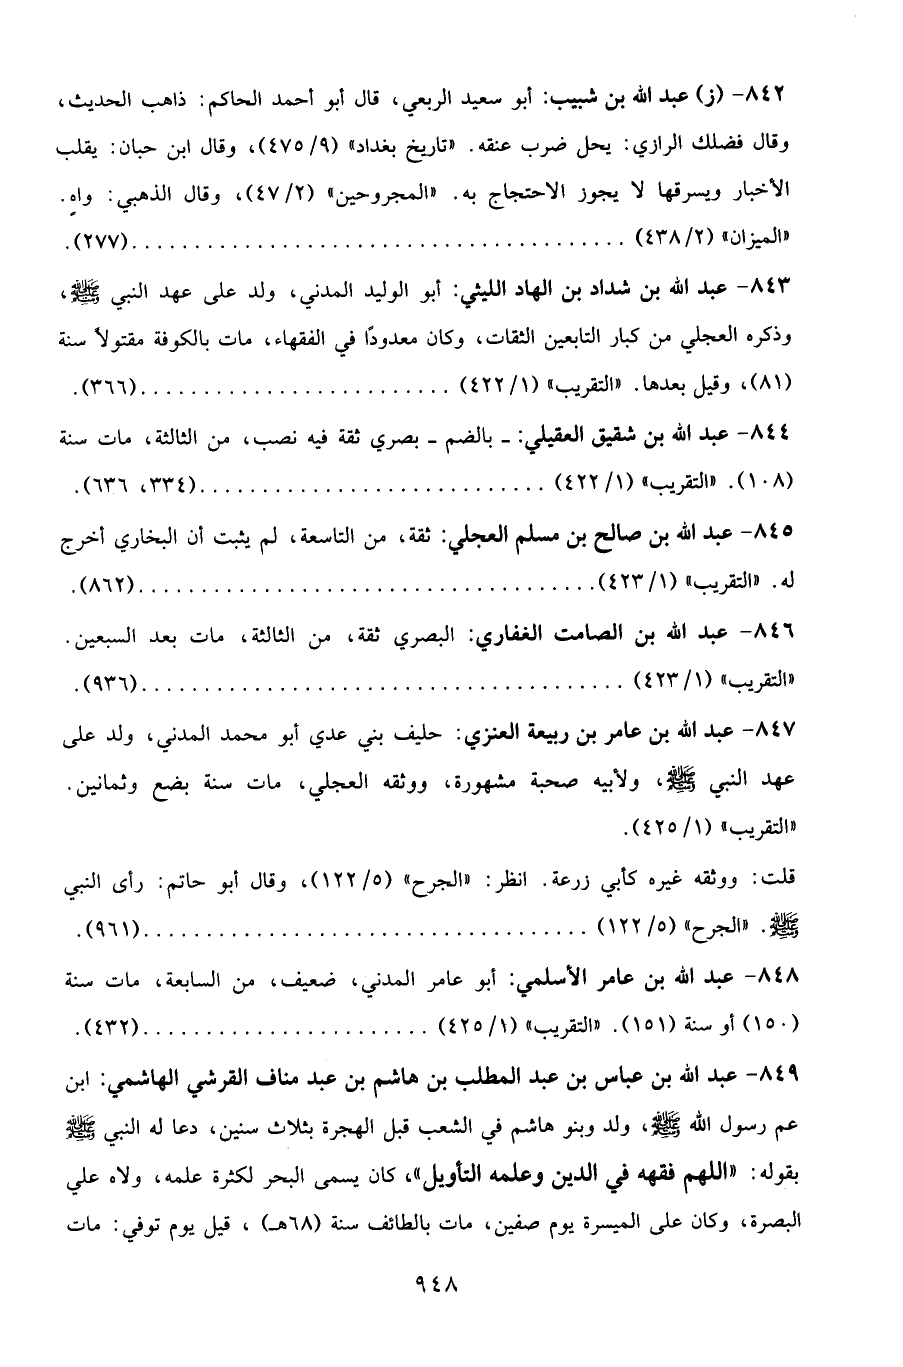 ٨٤٢- (ز) عبد الله بن شبيب: أبو سعيد الربعي، قال أبو أحمد الحاكم: ذاهب الحديث،
وقال فضلك الرازي: يحل ضرب عنقه. «تاريخ بغداد» (٩/ ٤٧٥)، وقال ابن حبان: يقلب
الأخبار ويسرقها لا يجوز الاحتجاج به. «المجروحين» (٢/ ٤٧)، وقال الذهبي: واهٍ.
«الميزان» (٢/ ٤٣٨) ........................................(٢٧٧).
٨٤٣- عبد الله بن شداد بن الهاد الليثي: أبو الوليد المدني، ولد على عهد النبي ﷺ،
وذكره العجلي من كبار التابعين الثقات، وكان معدودًا في الفقهاء، مات بالكوفة مقتولاً سنة
(٨١)، وقيل بعدها. «التقريب» (١/ ٤٢٢) .........................(٣٦٦).
٨٤٤- عبد الله بن شقيق العقيلي: ـ بالضم ـ بصري ثقة فيه نصب، من الثالثة، مات سنة
(١٠٨). «التقريب» (١/ ٤٢٢) ............................(٣٣٤، ٦٣٦).
٨٤٥- عبد الله بن صالح بن مسلم العجلي: ثقة، من التاسعة، لم يثبت أن البخاري أخرج
له. «التقريب» (١/ ٤٢٣).....................................(٨٦٢).
٨٤٦- عبد الله بن الصامت الغفاري: البصري ثقة، من الثالثة، مات بعد السبعين.
«التقريب» (١/ ٤٢٣) .......................................(٩٣٦).
٨٤٧- عبد الله بن عامر بن ربيعة العنزي: حليف بني عدي أبو محمد المدني، ولد على
عهد النبي ﷺ، ولأبيه صحبة مشهورة، ووثقه العجلي، مات سنة بضع وثمانين.
«التقريب» (١/ ٤٢٥).
قلت: ووثقه غيره كأبي زرعة. انظر: «الجرح» (٥/ ١٢٢)، وقال أبو حاتم: رأى النبي
ﷺ. «الجرح» (٥/ ١٢٢) ....................................(٩٦١).
٨٤٨- عبد الله بن عامر الأسلمي: أبو عامر المدني، ضعيف، من السابعة، مات سنة
(١٥٠) أو سنة (١٥١). «التقريب» (١/ ٤٢٥) .......................(٤٣٢).
٨٤٩- عبد الله بن عباس بن عبد المطلب بن هاشم بن عبد مناف القرشي الهاشمي: ابن
عم رسول الله ﷺ، ولد وبنو هاشم في الشعب قبل الهجرة بثلاث سنين، دعا له النبي ﷺ
بقوله: «اللهم فقهه في الدين وعلمه التأويل»، كان يسمى البحر لكثرة علمه، ولاه علي
البصرة، وكان على الميسرة يوم صفين، مات بالطائف سنة (٦٨هـ) ، قيل يوم توفي: مات
٩٤٨